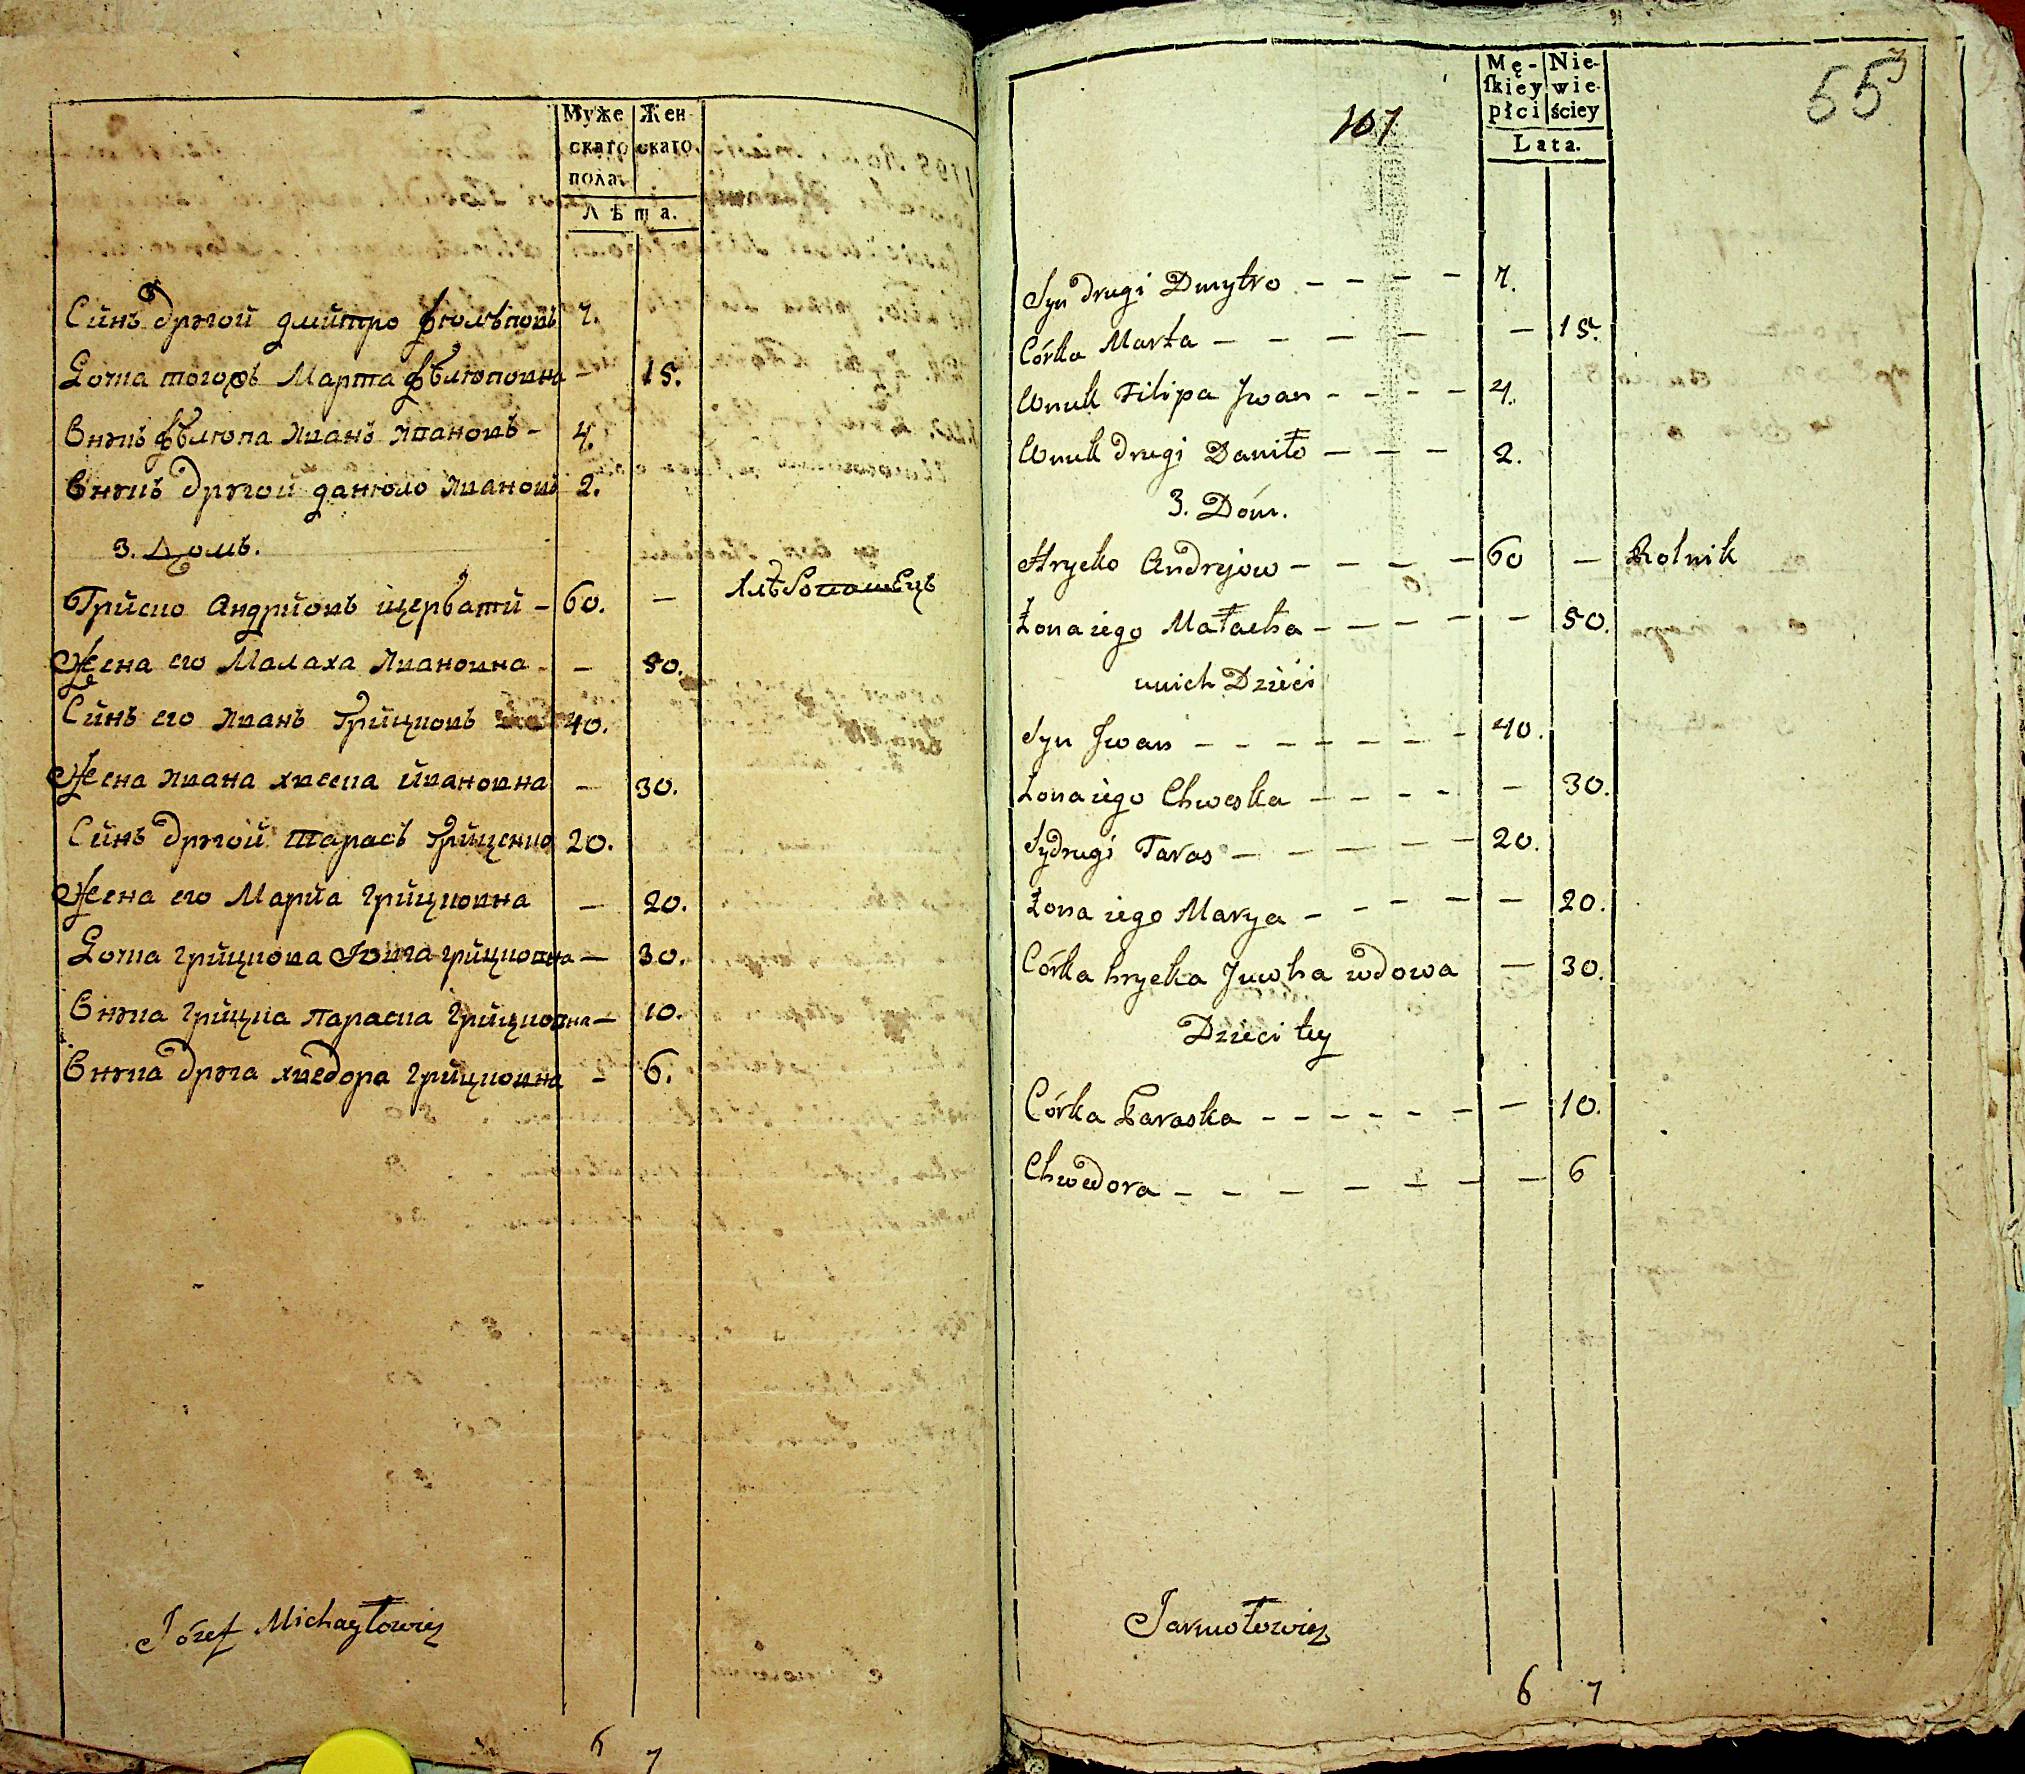 Муже Жен
скаго скаго
пола.
Лѣта.
Синъ другой дмитро 7.
Дочка тогожъ Марта 15.
Внукъ Иванъ Ивановъ - 4.
Внукъ другой данюло Ивановъ 2.
3. Домъ.
Грицко Андрийовъ щербатй - 60. -
Жена его Малаха Ивановна - - 50.
Синъ его Иванъ Грицковъ 40.
Жена Ивана хвеска йвановна - 30.
Синъ другой тарасъ Грищенко 20.
Жена его Марйа Грицковна - 20.
Дочка грицкова грицковна - 30.
Внука грицка параска Грицковна - 10.
Внука друга хведора грицковна - 6.
Józef Michayłowicz
6 7
Mę- Nie-
ſkiey wie-
płci ściey
Lata.
107
55
Syn drugi Dmytro - - - - 7.
Córka Marta - - - - - 15.
Wnuk Filipa Jwan - - - - 4.
Wnuk drugi Daniło - - - 2.
3. Dóm.
Hrycko Andrejow - - - - 60 - Rolnik
Żona iego Małacha - - - - - - 50.
unich Dzieci
Syn Jwan - - - - - - - 40.
Żona iego Chweska - - - - - 30.
Sydrugi Taras - - - - - 20.
Żona iego Marya - - - - - 20.
Córka hrycka Juwha wdowa - 30.
Dzieci tey
Córka Paraska - - - - - - - 10.
Chwedora - - - - - - - 6
Jarmołowicz
6 7